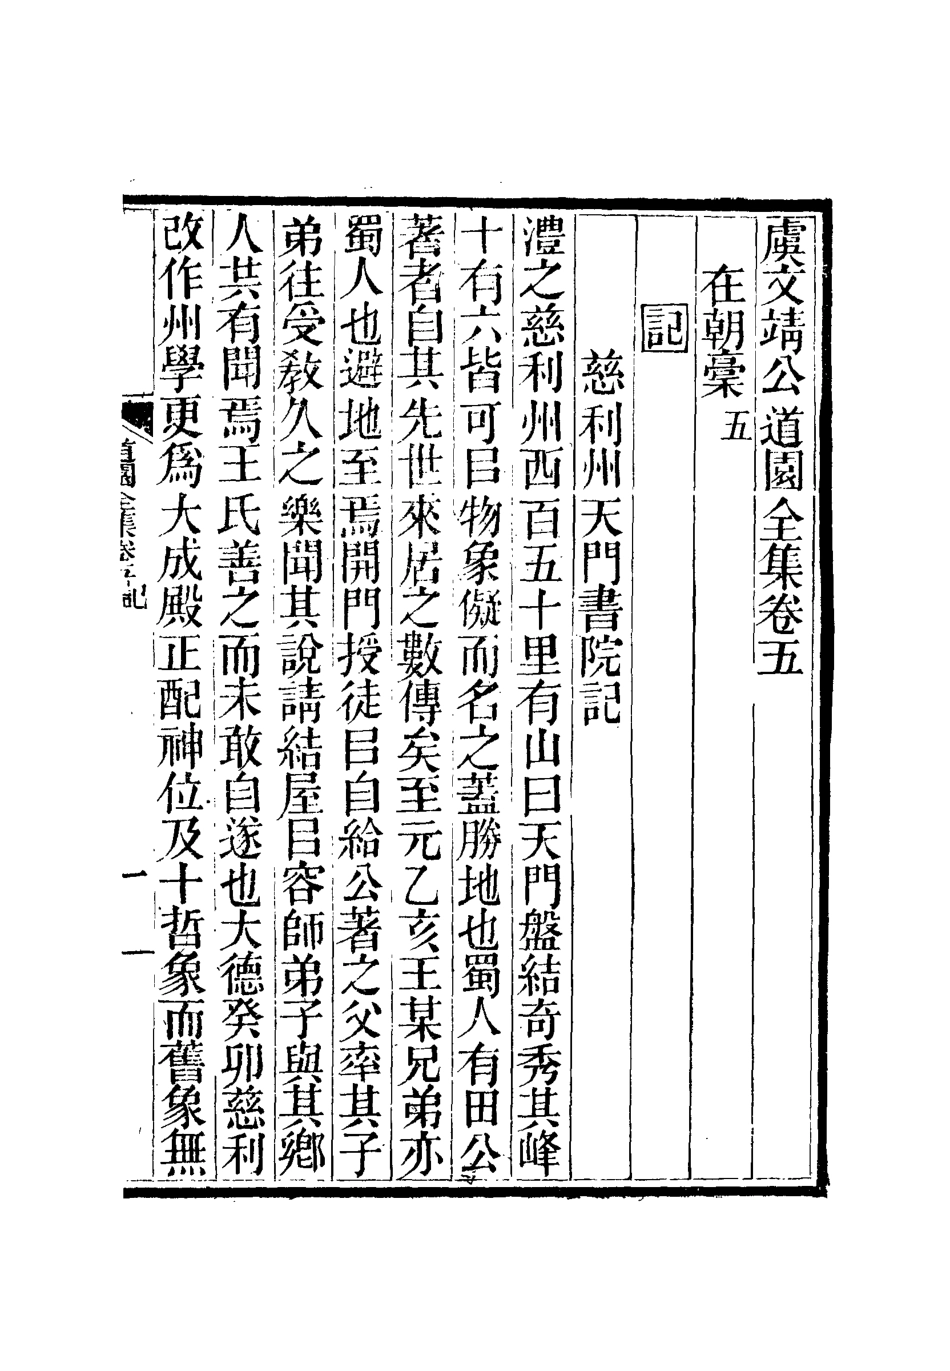 虞文靖公道園全集卷五
在朝稾五
記
慈利州天門書院記
澧之慈利州西百五十里有山曰天門盤結奇秀其峰
十有六皆可㠯物象儗而名之蓋勝地也蜀人有田公
著者自其先世來居之數傳矣至元乙亥王某兄弟亦
蜀人也避地至焉開門授徒㠯自給公著之父率其子
弟往受敎久之樂聞其說請結屋㠯容師弟子與其鄉
人共有聞焉王氏善之而未敢自遂也大德癸卯慈利
改作州學更爲大成殿正配神位及十哲象而舊象無
道園全集卷五 記
一